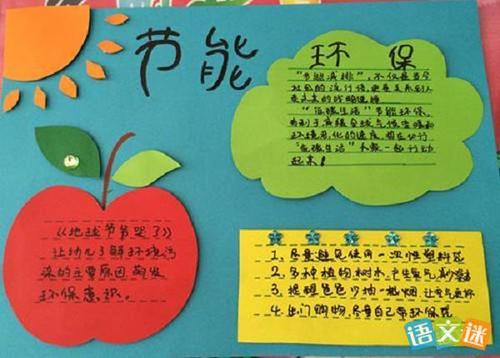 节能
环 保
"节能减排",不仅是当今
社会的流行语,更是关系到人
类未来的战略选择
"低碳生活"节能环保,
有利于减缓全球气候变暖和
环境恶化的速度,
"低碳生活" 一起行动
起来!
《地球爷爷哭了》
让幼儿了解环境污
染的主要原因,萌发
环保意识。
1、尽量避免使用一次性塑料
2、多种植物树木,产生氧气
3、提醒爸爸少抽一根烟
4、出门购物,尽量自己带环保袋
语文迷